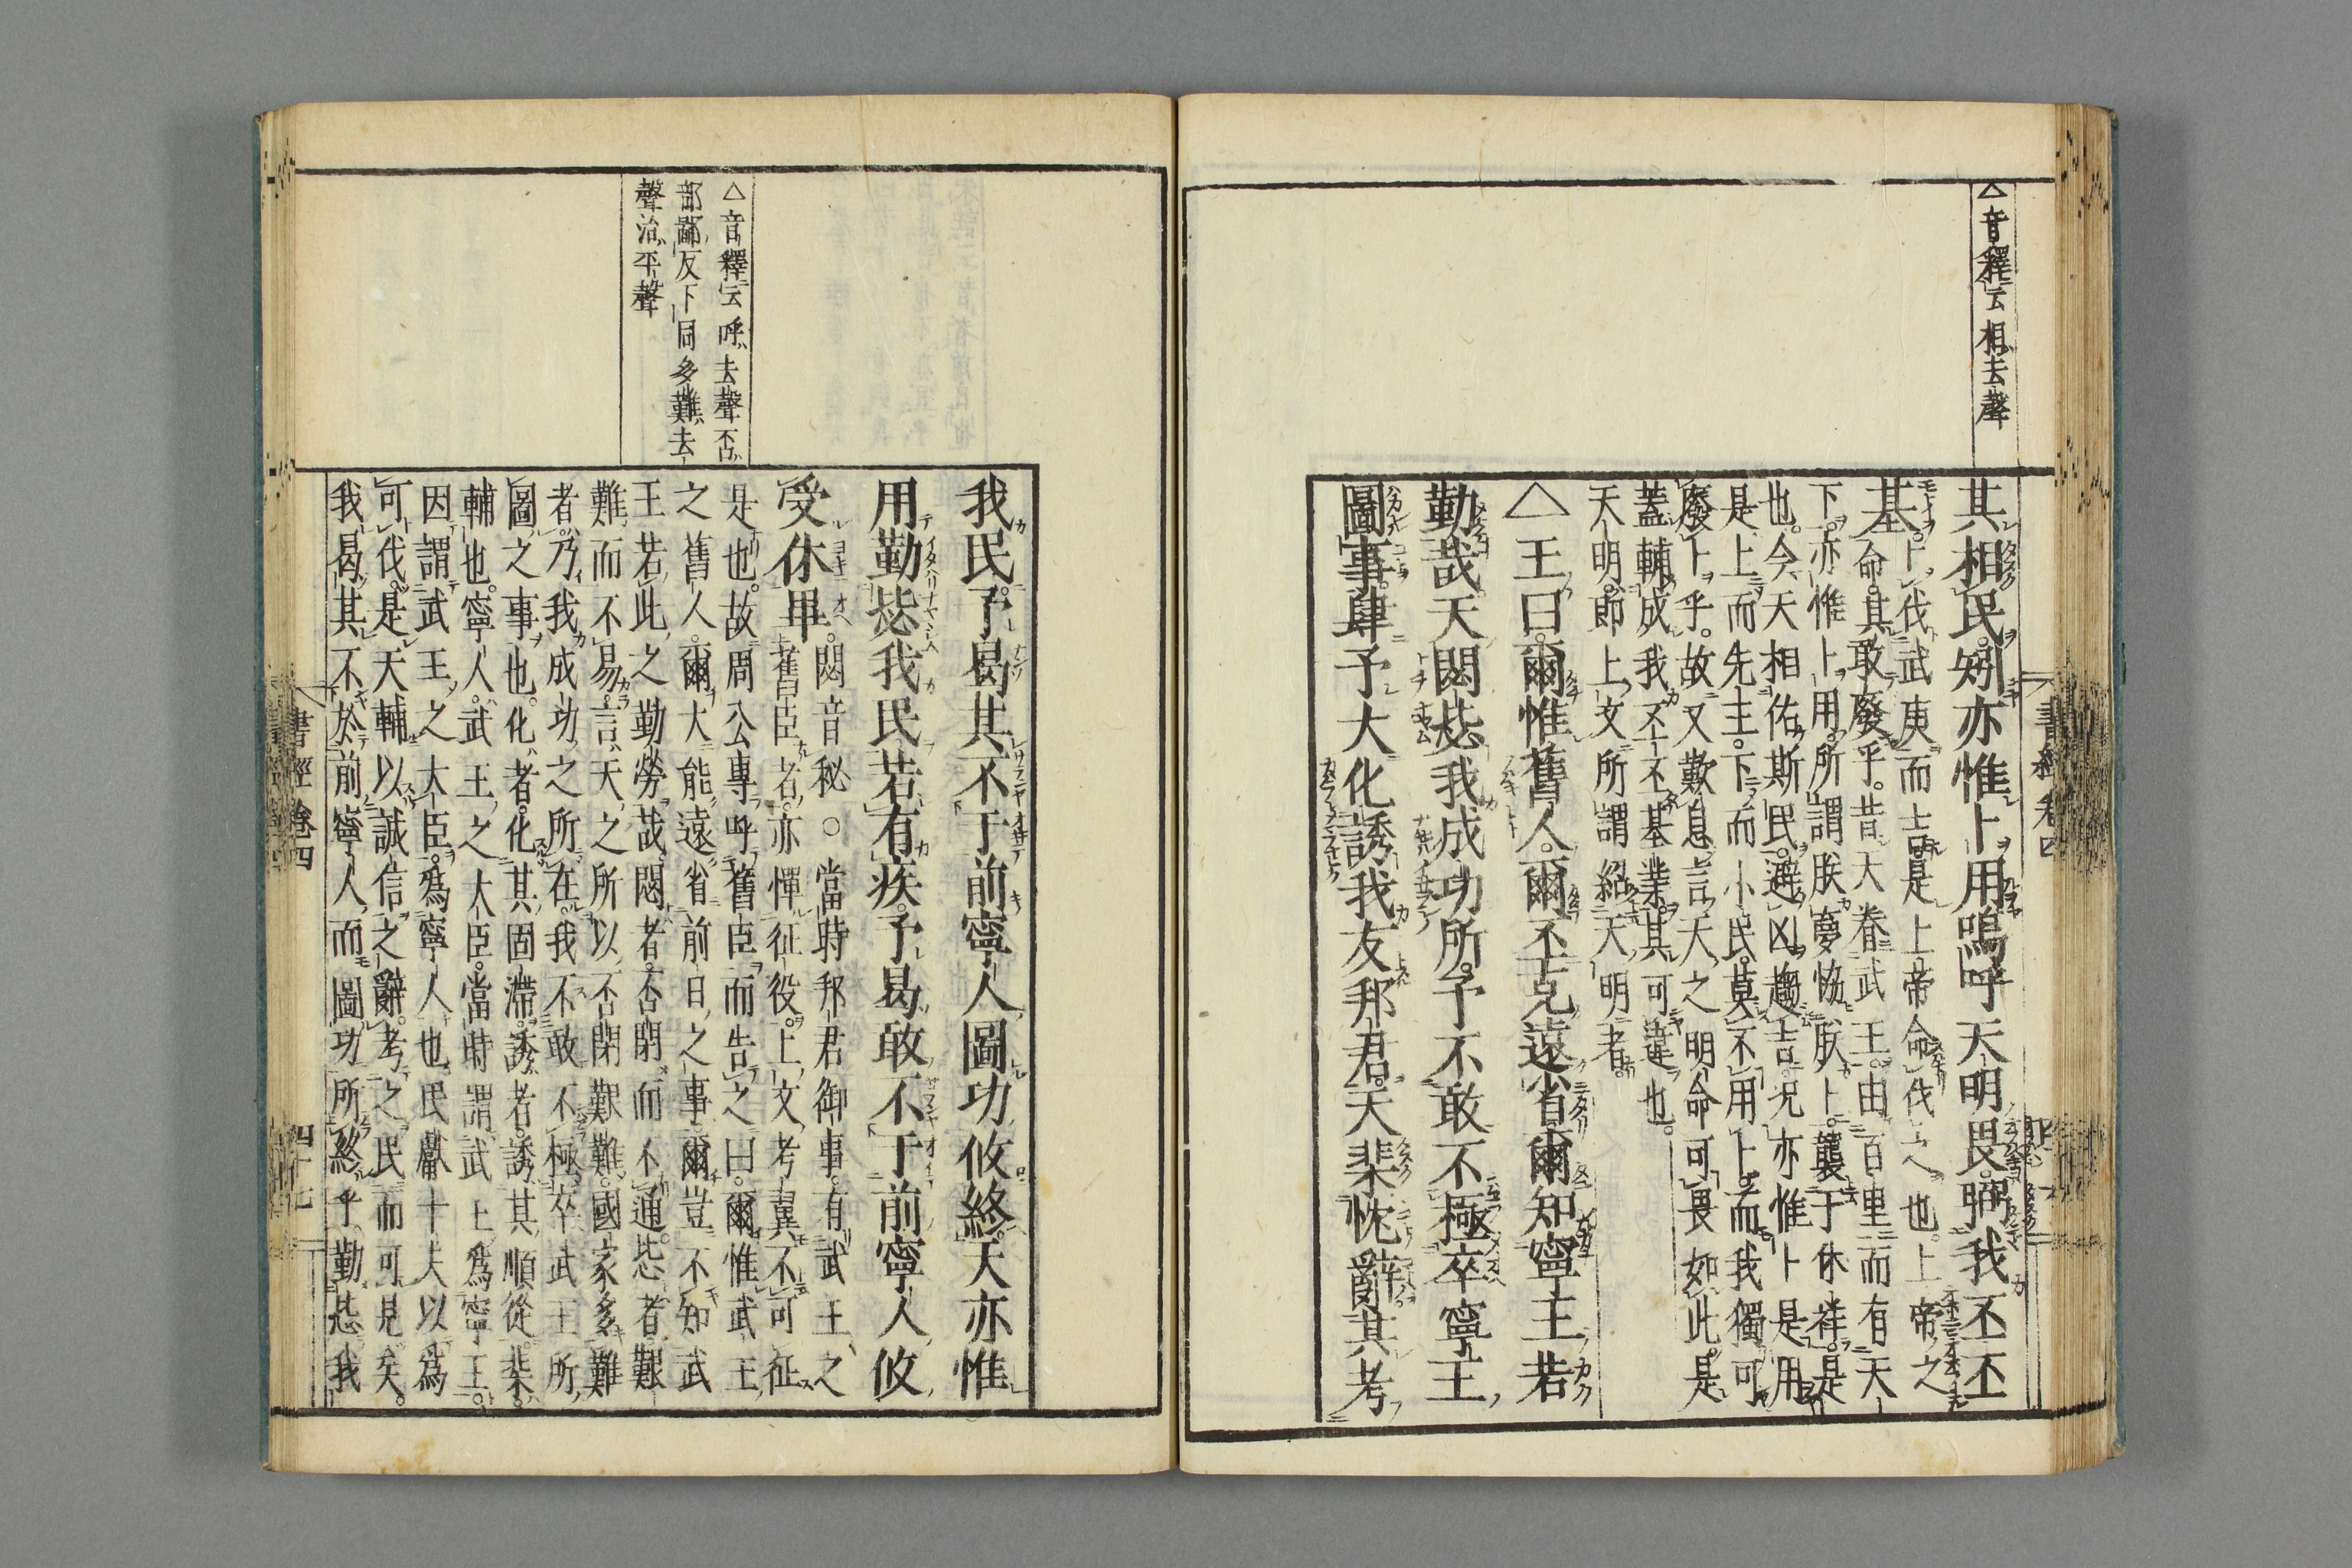 △音釋云相去聲
其相民矧亦惟卜用嗚呼天明畏弼我丕丕
基卜伐武庚而吉是上帝命伐之也上帝之
命其敢廢乎昔天眷武王由百里而有天
下亦惟卜用所謂朕夢協朕卜襲于休祥是
也今天相佑斯民避凶趨吉況亦惟卜是用
是上而先王下而小民莫不用卜而我獨可
廢卜乎故又歎息言天之明命可畏如此是
蓋輔成我丕丕基業其可違也
天明即上文所謂紹天明者
△王曰爾惟舊人爾丕克遠省爾知寧王若
勤哉天閟毖我成功所予不敢不極卒寧王
圖事肆予大化誘我友邦君天棐忱辭其考
書經卷四
△音釋云呼去聲否
部鄙反下同多難去
聲治平聲
我民予曷其不于前寧人圖功攸終天亦惟
用勤毖我民若有疾予曷敢不于前寧人攸
受休畢閟音秘○當時邦君御事有武王之
舊臣者亦憚征役上文考翼不可征
是也故周公專呼舊臣而告之曰爾惟武王
之舊人爾大能遠省前日之事爾豈不知武
王若此之勤勞哉閟者否閉而不通毖者艱
難而不易言天之所以否閉艱難國家多難
者乃我成功之所在我不敢不極卒武王所
圖之事也化者化其固滯誘者誘其順從棐
輔也寧人武王之大臣當時謂武王爲寧王
因謂武王之大臣爲寧人也民獻十夫以爲
可伐是天輔以誠信之辭考之民而可見矣
我曷其不於前寧人而圖功所終乎勤毖我
書經卷四
四十七